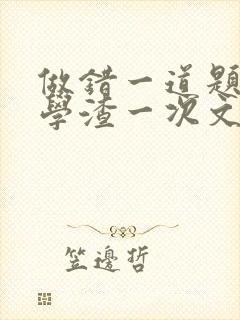 做錯一道題
學渣一次文
笠邊哲